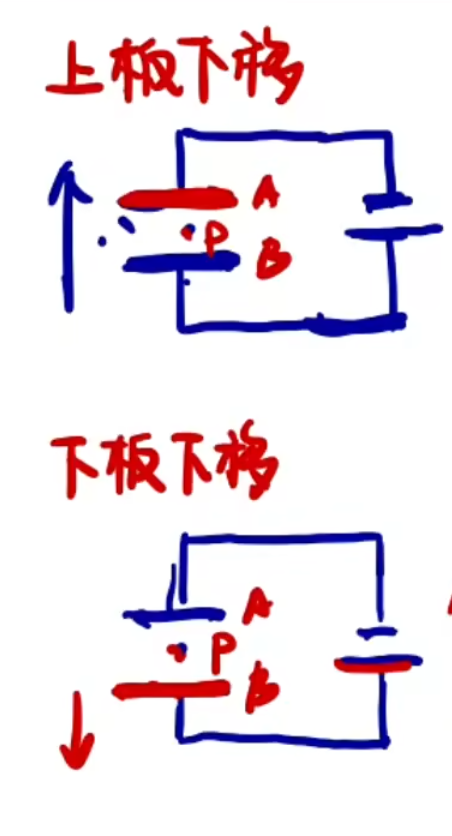 上板下移
A
P
B
下板下移
A
P
B